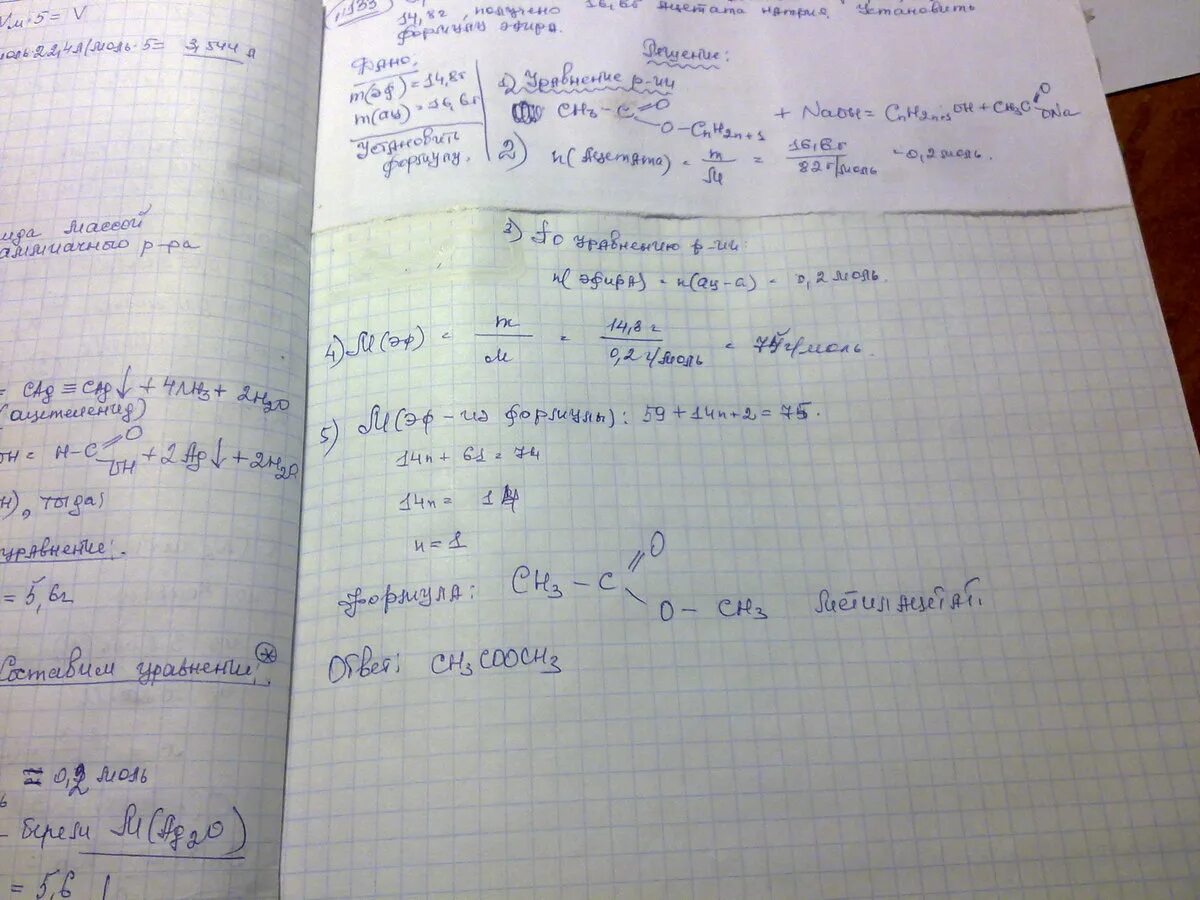 Vм·5 = V
моль·22,4л/моль·5= 3,544 л
Массой
аммиачного р-ра
= CAg≡CAg↓ + 4NH3 + 2H2O
(ацетеленид)
OH = H-C=O OH + 2Ag↓ + 2H2O
Н), тогда:
уравнение:
= 5,6г
Составим уравнение:*
= 0,2 моль
- берем M(Ag2O)
= 5,6
,133)
14,8г, получено 16,6г ацетата натрия. Установить
формулу эфира.
Решение:
Дано:
m(эф) = 14,8г
m(ац) = 16,6г
Установить
формулу.
1) Уравнение р-ии
CH3 - C =O O-CnH2n+1 + NaOH = CnH2n+1OH + CH3C=O ONa
2) n(Ацетата) = m/M = 16,6г/82г/моль =0,2 моль.
3) По уравнению р-ии:
n(эфира) = n(ац-а) = 0,2 моль.
4) M(эф) = m/M = 14,8 г/0,2 г/моль = 74 г/моль.
5) M(эф-из формулы): 59 + 14n + 2 = 75.
14n + 61 = 74
14n = 14
n = 1
Формула: CH3 - C =O O - CH3 Метилацетат.
Ответ: CH3COOCH3